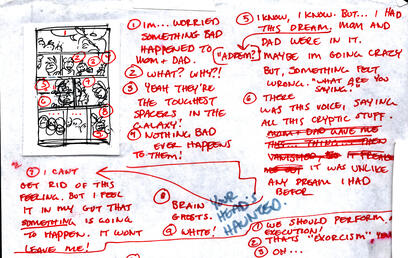 ① IM... WORRIED
SOMETHING BAD
HAPPENED TO
MOM + DAD.
② WHAT? WHY?!
③ YEAH THEY'RE
THE TOUGHEST
SPACERS IN
THE GALAXY!
④ NOTHING BAD
EVER HAPPENS
TO THEM!
⑤ I KNOW, I KNOW. BUT... I HAD
THIS DREAM, MOM AND
DAD WERE IN IT.
"ADREM?"
MAYBE IM GOING CRAZY
BUT, SOMETHING FELT
WRONG. "WHAT ARE YOU
SAYING."
⑥ THERE
WAS THIS VOICE, SAYING
ALL THIS CRYPTIC STUFF.
MOM + DAD GAVE ME
THIS... THING... THEN
VANISHED, SO IT FREAKED
ME OUT IT WAS UNLIKE
ANY DREAM I HAD
BEFOR
⑦ I CANT
GET RID OF THIS
FEELING. BUT I FEEL
IT IN MY GUT THAT
SOMETHING IS GOING
TO HAPPEN. IT WONT
LEAVE ME!
⑧ BRAIN
GHOSTS.
⑨ WHITE!
YOUR
HEAD'S
HAUNTED.
① WE SHOULD PERFORM A
EXECUTION!
② THATS "EXORCISM"
③ OH...